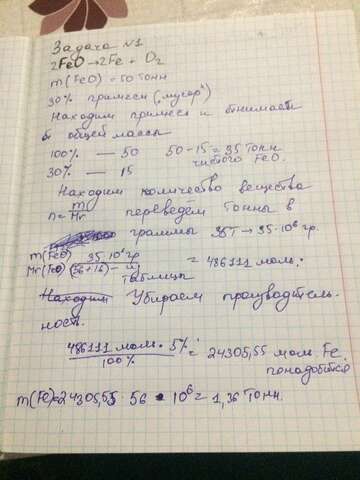 Задача №1
2FeO → 2Fe + O2
m(FeO) = 50 тонн
30% примеси („мусор")
Находим примеси и отнимаем
от общей массы
100% — 50 50-15 = 35 тонн
30% — 15 чистого FeO.
Находим количество вещества
n = m/Mr переведём тонны в
граммы 35т → 35·10⁶гр.
m(FeO) 35·10⁶ = 486111 моль.
Mr(FeO) (56+16) – из
таблицы
Находим Убираем производитель-
ность.
486111 моль · 5% / 100% = 24305,55 моль Fe
понадобится
m(Fe)=24305,55 · 56 · 10⁶ = 1,36 тонн.